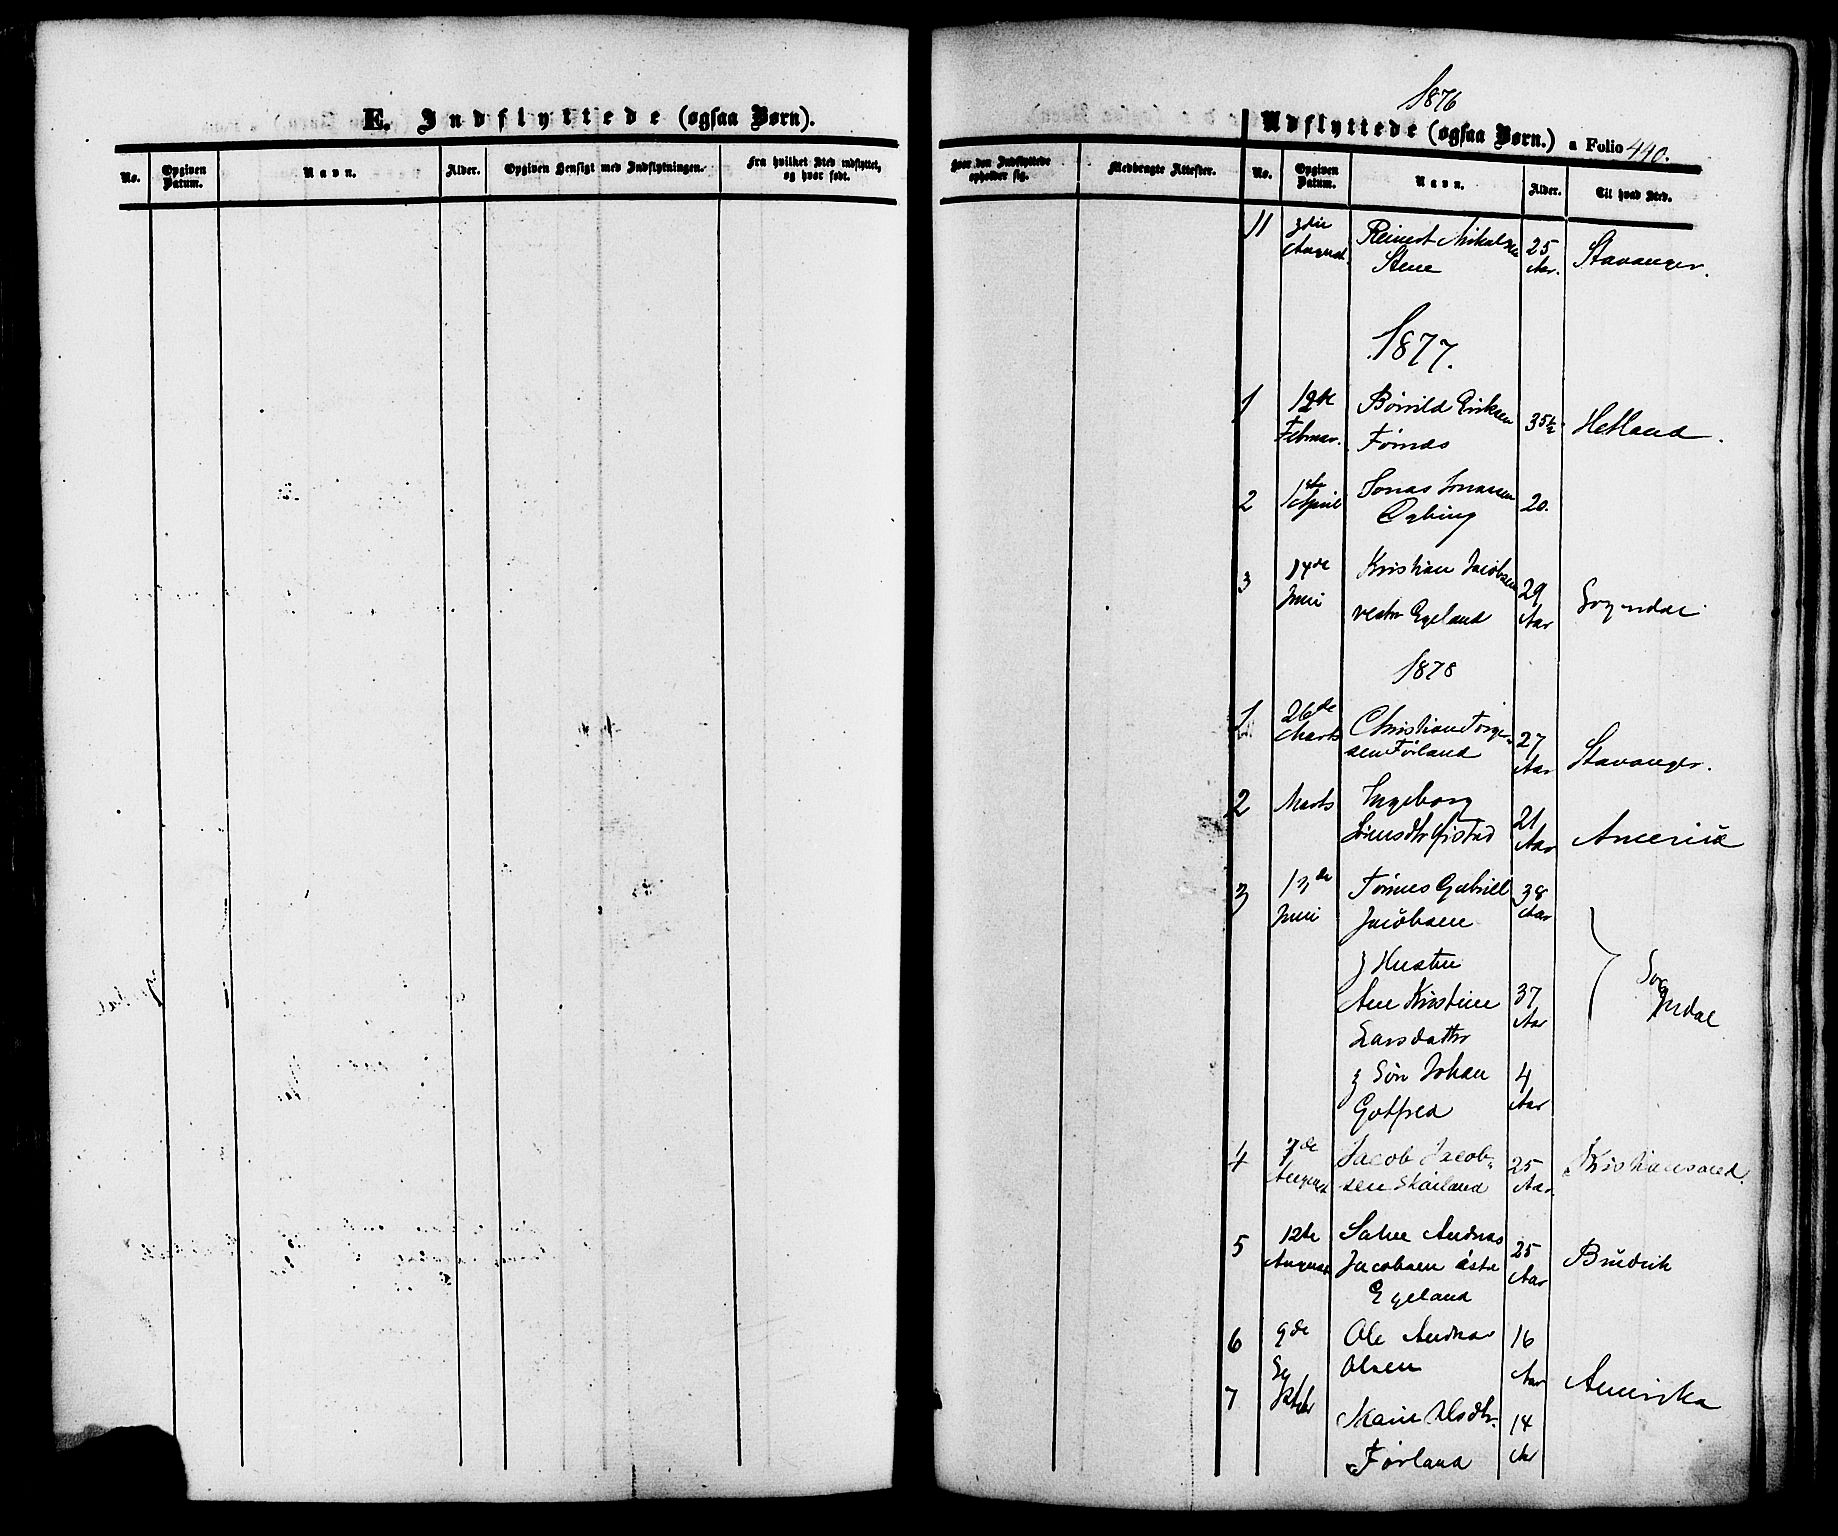 E. Indflyttede (ogsaa Børn).
No.
Opgiven Datum.
Navn.
Alder.
Opgiven Hensigt med Indflytningen.
Fra hvilket Sted indflyttet, og hvor født.
Hvor den Indflyttede opholder sig.
Medbragte Attester.
1876
Udflyttede (ogsaa Børn.) a Folio 440.
No.
Opgiven Datum.
Navn.
Alder.
Til hvad Sted.
11 August Reinert 25
Stene Aar. Stavanger.
1877.
1 12te Eriksen 35½ Hetland.
Februar.
2 1ste Jonas Jonassen 20.
April
3 14de Kristian Jacobsen 29 Sogndal
Juni vestre Egeland Aar
1878
1 26de Christian Torge- 27
Marts sen Førland Aar Stavanger.
2 Marts Ingeborg 21
Aar Amerika
3 13de Gabriel 38
Juni Jacobsen Aar
Hustru
Ane Kristine 37 Sogndal
Larsdatter Aar
Søn Johan 4
Gotfred Aar
4 7de Jacob Jacob- 25 Kristiansand.
August sen Skailand Aar
5 12te Salve Andreas 25
August Jacobsen østre Aar
Egeland
6 9de Ole Andreas 16
Olsen Aar Amerika
7 Olsdtr. 14
Førland